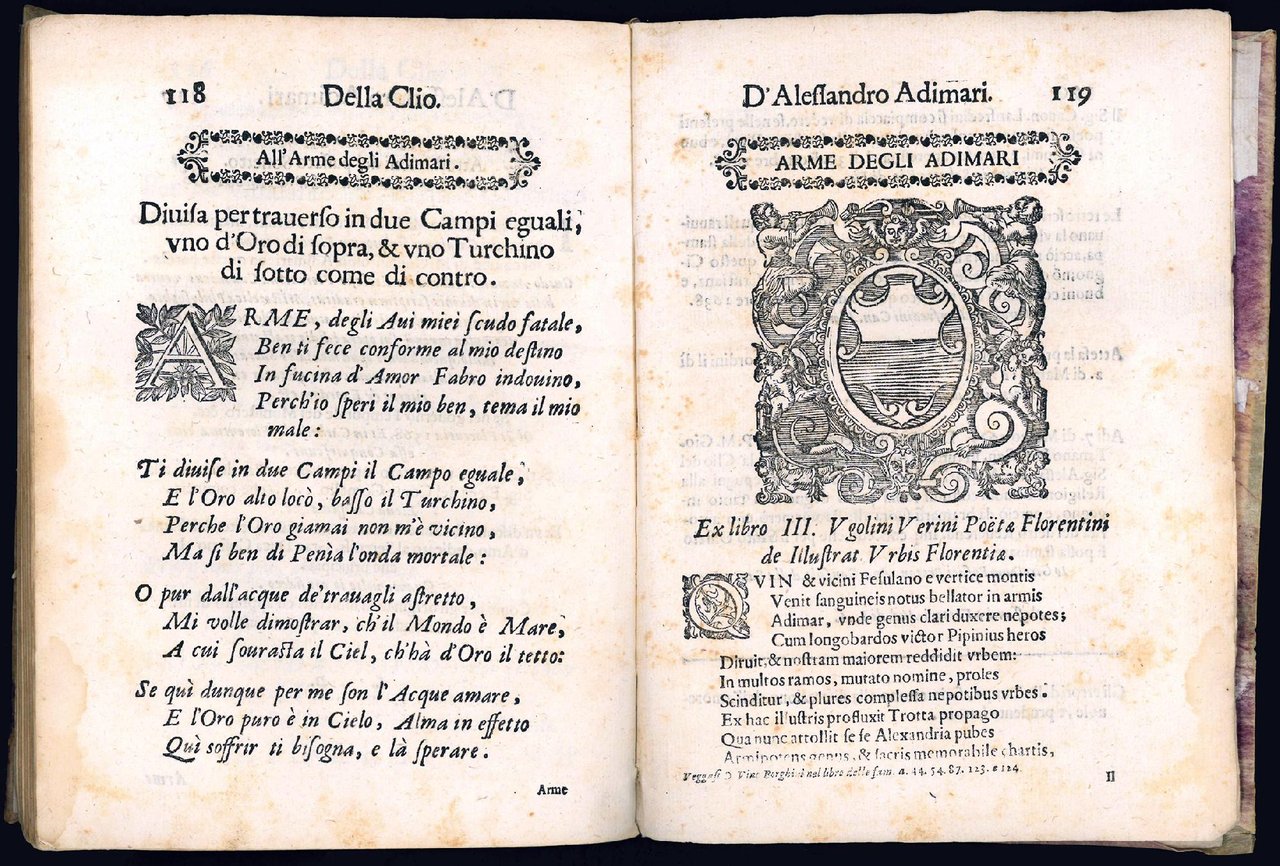 118
Della Clio.
All'Arme degli Adimari.
Diuiſa per trauerſo in due Campi eguali,
vno d'Oro di ſopra, & vno Turchino
di ſotto come di contro.
ARME, degli Aui miei ſcudo fatale,
Ben ti fece conforme al mio deſtino
In fucina d'Amor Fabro indouino,
Perch'io ſperi il mio ben, tema il mio
male:
Ti diuiſe in due Campi il Campo eguale,
E l'Oro alto locò, baſſo il Turchino,
Perche l'Oro giamai non m'è vicino,
Ma ſi ben di Penìa l'onda mortale:
O pur dall'acque de' trauagli aſtretto,
Mi volle dimoſtrar, ch'il Mondo è Mare,
A cui ſouraſta il Ciel, ch'hà d'Oro il tetto:
Se quì dunque per me ſon l'Acque amare,
E l'Oro puro è in Cielo, Alma in effetto
Quì soffrir ti biſogna, e là ſperare.
Arme
D'Aleſſandro Adimari.
119
ARME DEGLI ADIMARI
Ex libro III. Vgolini Verini Poëtæ Florentini
de Illuſtrat Vrbis Florentiæ.
QVIN & vicini Feſulano e vertice montis
Venit ſanguineis notus bellator in armis
Adimar, vnde genus clari duxere nepotes;
Cum longobardos victor Pipinius heros
Diruit, & noſtram maiorem reddidit vrbem:
In multos ramos, mutato nomine, proles
Scinditur, & plures complexſa nepotibus vrbes.
Ex hac illuſtris profluxit Trotta propago
Qua nunc attollit ſe ſe Alexandria pubes
Armipotens genus, & ſacris memorabile chartis,
Veggaſi D Vinc Borghini nel libro delle fam. a. 44. 54. 87. 123. e 124.
II